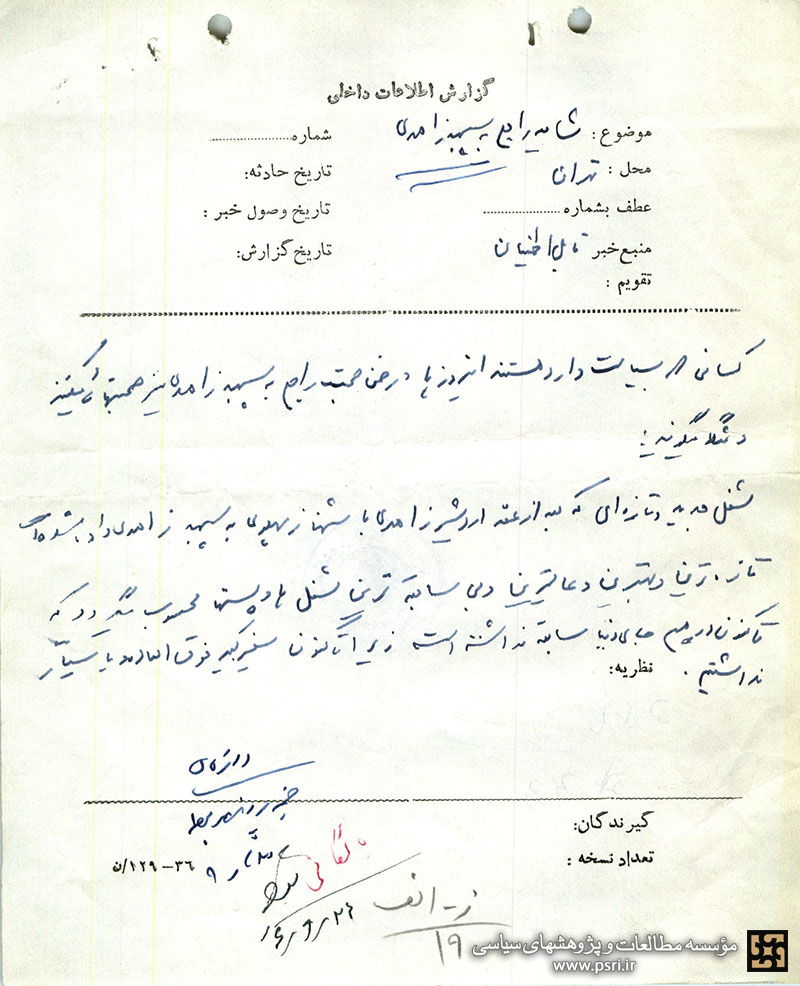 گزارش اطلاعات داخلی
موضوع: شایعه راجع به سپهبد زاهدی
شماره
محل: تهران
تاریخ حادثه:
عطف بشماره
تاریخ وصول خبر:
منبع خبر قابل اطمینان
تاریخ گزارش:
تقویم:
کسانی که بسیاست وارد هستند این روزها در ضمن صحبت راجع به سپهبد زاهدی نیز صحبتهائی میکنند
و مثلا میگویند:
شغل جدید و تازه‌ای که بعد از عقد اردشیر زاهدی با شهناز پهلوی به سپهبد زاهدی داده شده
تازه‌ترین و بهترین و عالیترین و بی سابقه ترین شغل ها و پستها محسوب میگردد که
تاکنون در هیچ جای دنیا سابقه نداشته است زیرا تاکنون سفیر کبیر فوق العاده یا سیار
نداشتیم.
نظریه:
گیرندگان:
تعداد نسخه:
۳۶-۱۲۹/ن
بایگانی
ز - الف
۱۹
مؤسسه مطالعات و پژوهشهای سیاسی
www.psri.ir